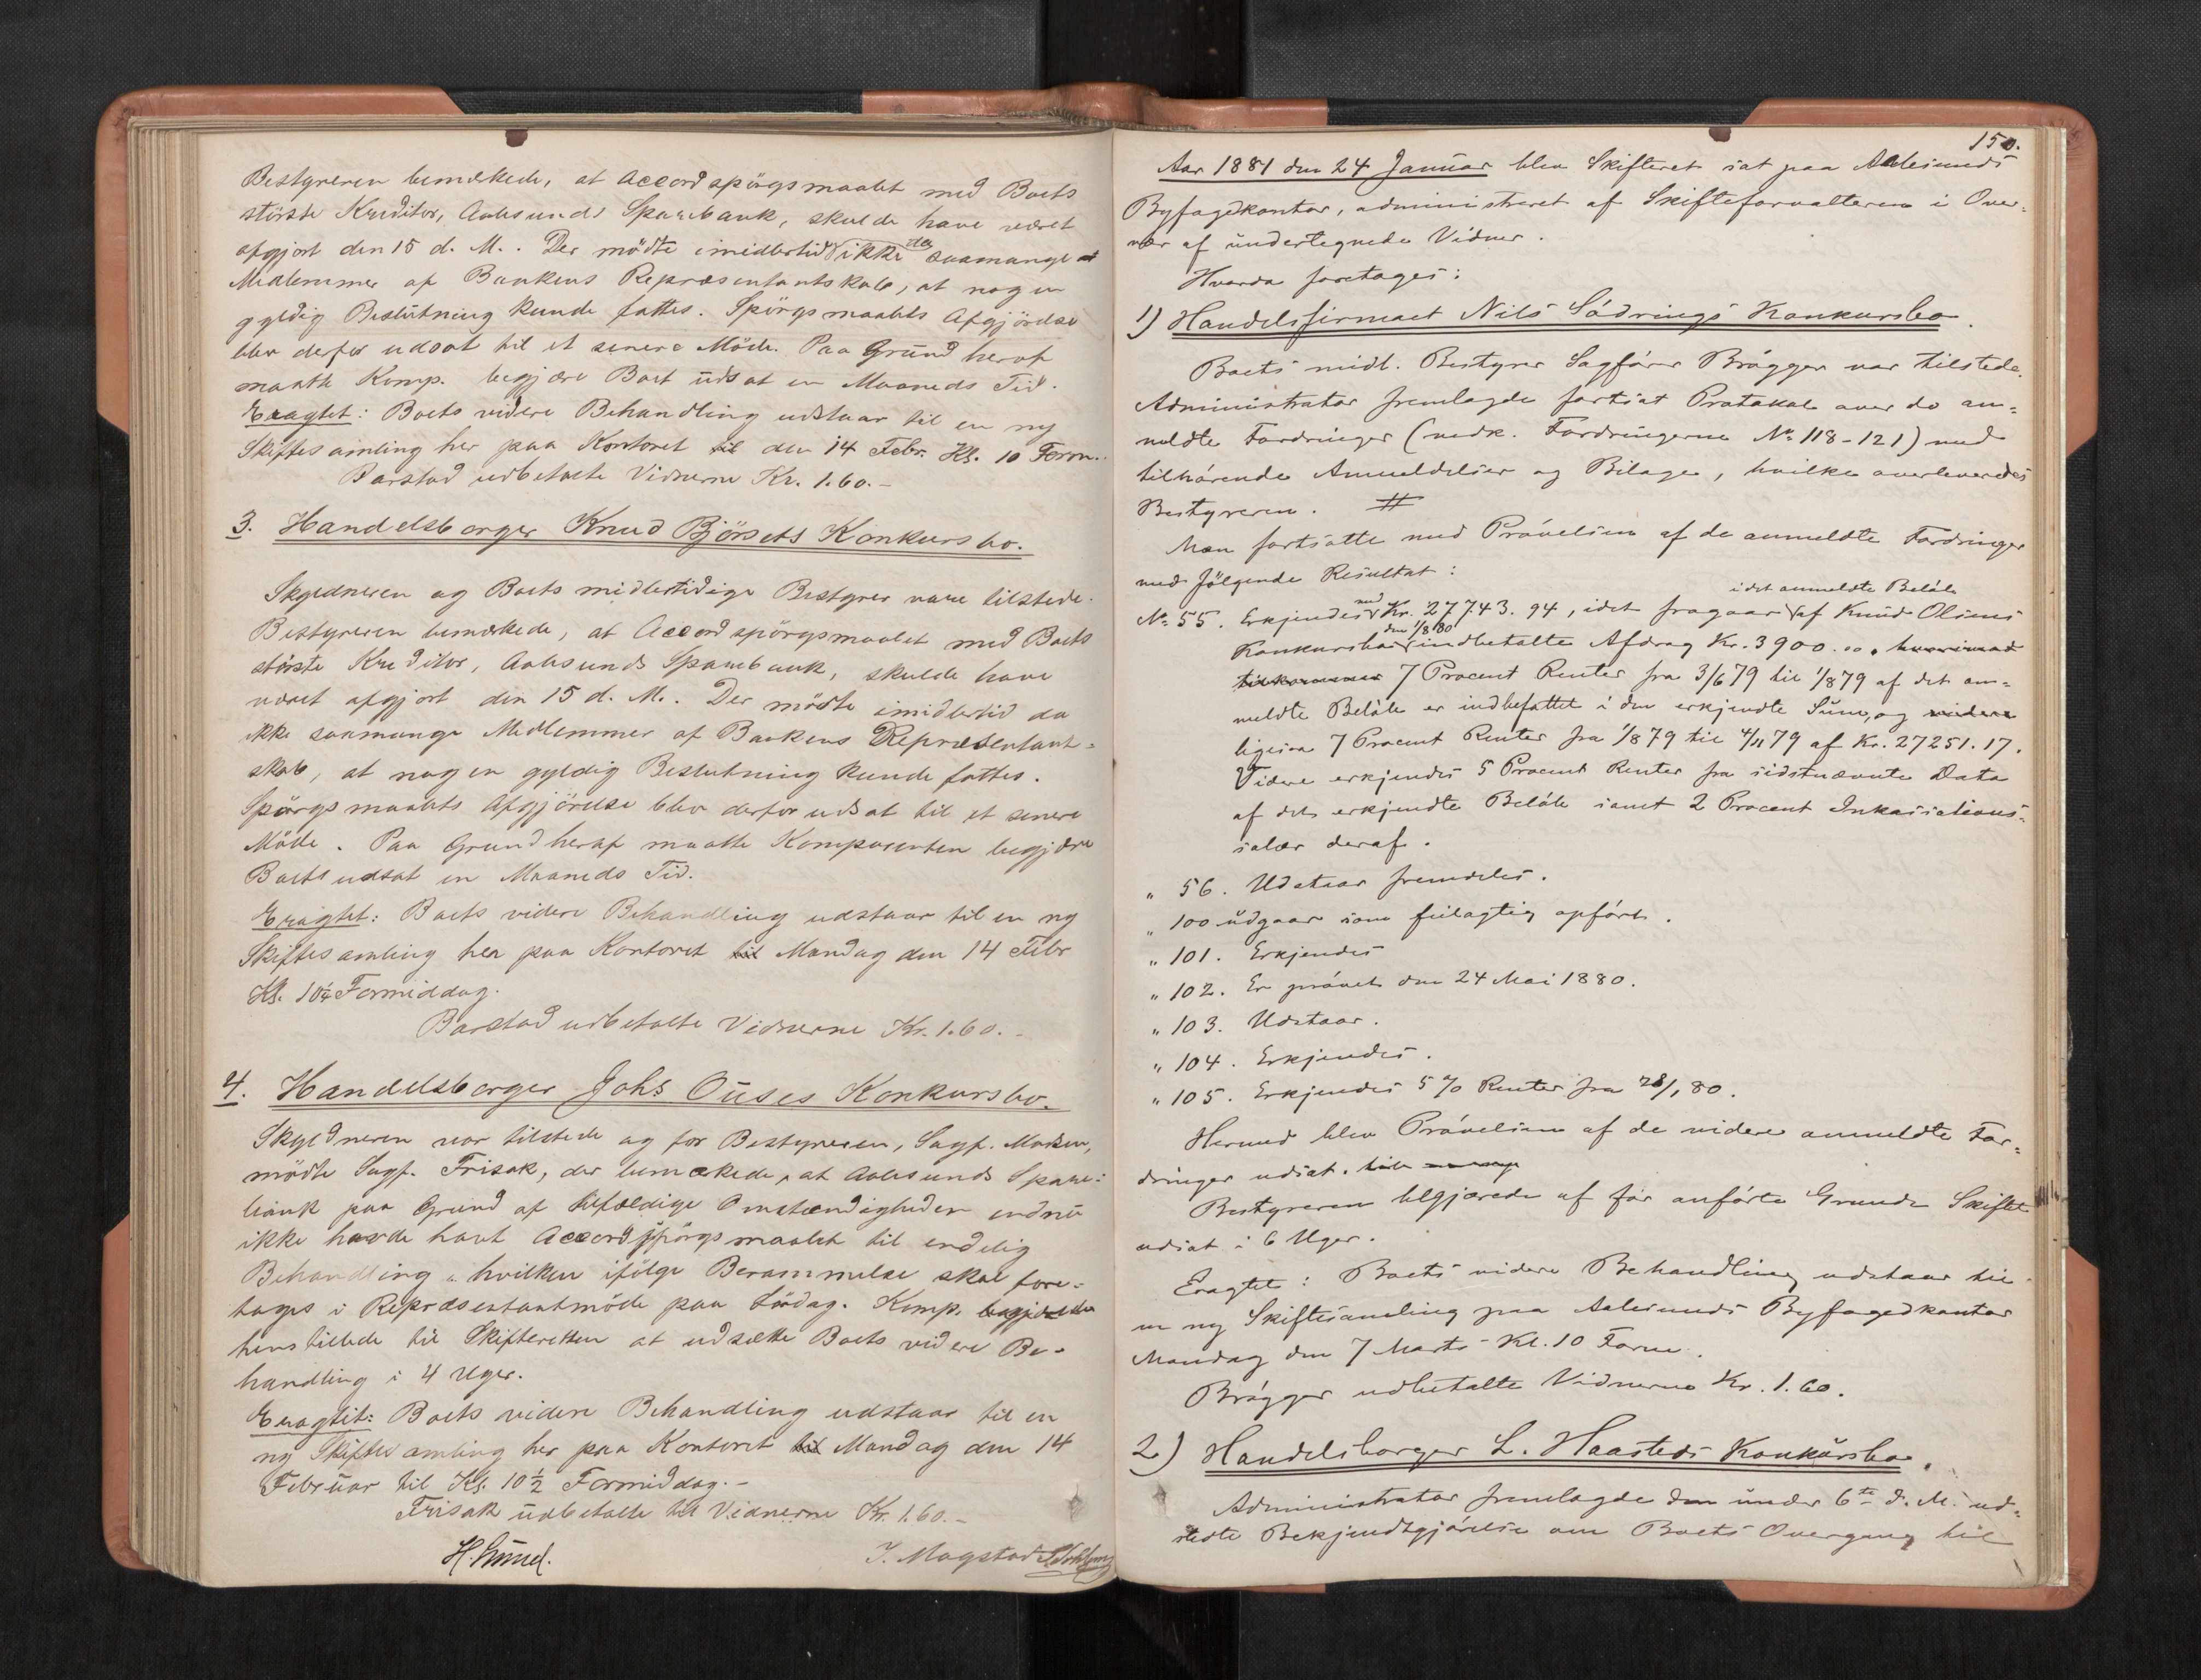 Bestyreren bemærkede, at Accordspörgsmaalet med Boets
störste Kreditor, Aalesunds Sparebank, skulde have været
afgjort den 15 d. M. . Der mödte imidlertid da ikke saamange
Medlemmer af Bankens Repræsentantskab, at nogen
gyldig Beslutning kunde fattes. Spörgsmaalets Afgjörelse
blev derfor udsat til et senere Möde. Paa Grund heraf
maatte Komp. begjære Boet udsat en Maaneds Tid.
Eragtet: Boets videre Behandling udstaar til en ny
Skiftesamling her paa Kontoret til den 14 Febr. Kl. 10 Form..
Barstad udbetalte Vidnerne Kr. 1.60.-
3. Handelsborger Knud Björsets Konkursbo.
Skyldneren og Boets midlertidige Bestyrer vare tilstede.
Bestyreren bemærkede, at Accordspörgsmaalet med Boets
störste Kreditor, Aalesunds Sparebank, skulde have
været afgjort den 15 d. M.. Der mödte imidlertid da
ikke saamange Medlemmer af Bankens Repræsentant=
skab, at nogen gyldig Beslutning kunde fattes.
Spörgsmaalets Afgjörelse blev derfor udsat til et senere
Möde. Paa Grund heraf maatte Komparenten begjære
Boet udsat en Maaneds Tid.
Eragtet: Boets videre Behandling udstaar til en ny
Skiftesamling her paa Kontoret til Mandag den 14 Febr
Kl. 10¼ Formiddag.
Barstad udbetalte Vidnerne Kr. 1.60.-
4. Handelsborger Johs Ouses Konkursbo.
Skyldneren var tilstede og for Bestyreren, Sagf. Madsen,
mödte Sagf. Frisak, der bemærkede, at Aalesunds Spare=
bank paa Grund af tilfældige Omstændigheder endnu
ikke havde havt Accordspörgsmaalet til endelig
Behandling, hvilken ifölge Berammelse skal fore=
tages i Repræsentantmöde paa Lördag. Komp.
henstillede til Skifteretten at udsætte Boets videre Be-
handling i 4 Uger.
Eragtet: Boets videre Behandling udstaar til en
ny Skiftesamling her paa Kontoret til Mandag den 14
Februar til Kl. 10½ Formiddag.-
Frisak udbetalte Vidnerne Kr. 1.60.-
H. Lund. J. Magstad
150.
Aar 1881 den 24 Januar blev Skifteret sat paa Aalesunds
Byfogedkontor, administreret af Skifteforvalteren i Over=
vær af undertegnede Vidner.
Hvorda foretages:
1) Handelsfirmaet Nils Södrings Konkursbo.
Boets midl. Bestyrer Sagförer Brögger var tilstede.
Administrator fremlagde fortsat Protokol over de an=
meldte Fordringer (vedk. Fordringerne No 118-121) med
tilhörende Anmeldelser og Bilage, hvilke overleveredes
Bestyreren. #
Man fortsatte med Prövelsen af de anmeldte Fordringer
med fölgende Resultat:
No 55. Erkjendes med Kr. 27743.94, idet fragaar i det anmeldte Belöb af Knud Olsens
Konkursbo den 1/8 80 indbetalte Afdrag Kr. 3900.00.
7 Procent Renter fra 3/6 79 til 1/8 79 af det an=
meldte Belöb er indbefattet i den erkjendte Sum, og videre
ligesaa 7 Procent Renter fra 1/8 79 til 4/11 79 af Kr. 27251.17.
Videre erkjendes 5 Procent Renter fra sidstnævnte Dato
af det erkjendte Belöb samt 2 Procent Inkassations=
salær deraf.
" 56. Udstaar fremdeles.
" 100 udgaar som feilagtig opfört.
" 101. Erkjendes
" 102. Er prövet den 24 Mai 1880.
" 103. Udstaar.
" 104. Erkjendes.
" 105. Erkjendes 5 % Renter fra 28/1 80.
Hermed blev Prövelsen af de videre anmeldte For=
dringer udsat.
Bestyreren begjærede af för anförte Grunde Skiftet
udsat i 6 Uger.
Eragtet: Boets videre Behandling udstaar til
en ny Skiftesamling paa Aalesunds Byfogedkontor
Mandag den 7 Marts Kl. 10 Form.
Brögger udbetalte Vidnerne Kr. 1.60.
2) Handelsborger L. Haasteds Konkursbo.
Administrator fremlagde den under 6te d. M. ud=
stedte Bekjendtgjörelse om Boets Overgang til